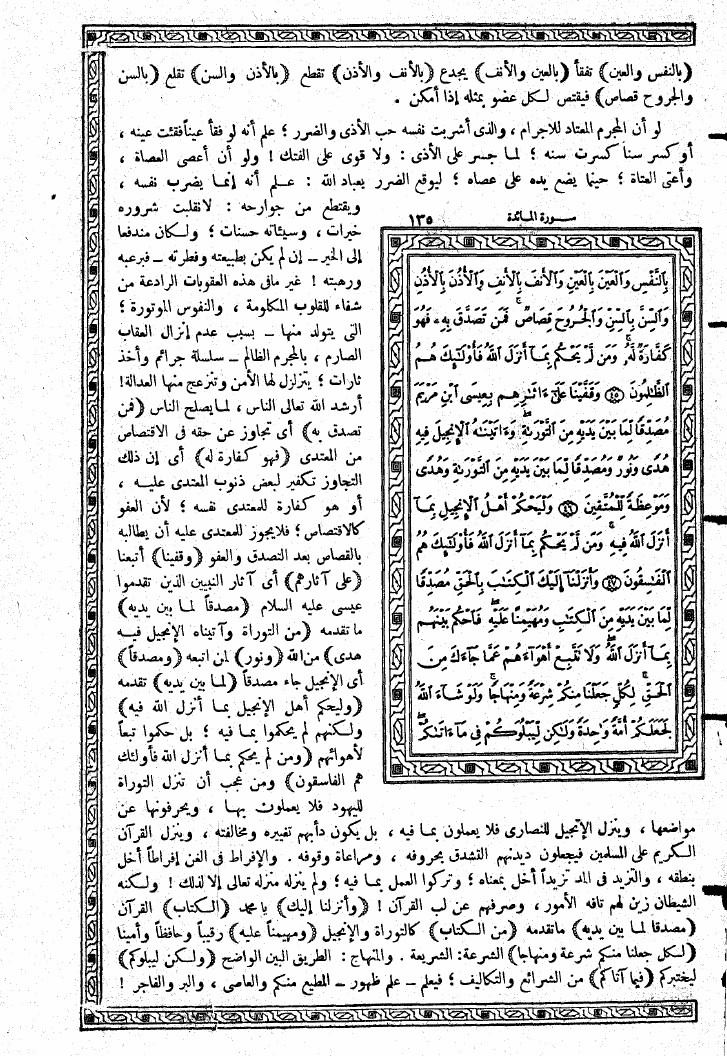 (بالنفس والعين) تفقأ (بالعين والأنف) يجدع (بالأنف والأذن) تقطع (بالأذن والسن) تقلع (بالسن
والجروح قصاص) فيقتص لكل عضو بمثله إذا أمكن .
لو أن المجرم المعتاد للاجرام ، والذى أشربت نفسه حب الأذى والضرر ؛ علم أنه لو فقأ عيناً فقئت عينه ،
أو كسر سناً كسرت سنه ؛ لما جسر على الأذى : ولا قوى على الفتك ! ولو أن أعصى العصاة ،
وأعتى العتاة ؛ حينما يضع يده على عصاه ؛ ليوقع الضرر بعباد الله : علم أنه إنما يضرب نفسه ،
ويقتطع من جوارحه : لانقلبت شروره
خيرات ، وسيئاته حسنات ؛ ولكان مندفعا
إلى الخير – إن لم يكن بطبيعته وفطرته – فبرعبه
ورهبته ! غير مافى هذه العقوبات الرادعة من
شفاء للقلوب المكلومة ، والنفوس الموتورة ؛
التى يتولد منها – بسبب عدم إنزال العقاب
الصارم ، بالمجرم الظالم – سلسلة جرائم وأخذ
ثارات ؛ يتزلزل لها الأمن وتنزعج منها العدالة!
أرشد الله تعالى الناس ، لما يصلح الناس (فمن
تصدق به) أى تجاوز عن حقه فى الاقتصاص
من المعتدى (فهو كفارة له) أى إن ذلك
التجاوز تكفير لبعض ذنوب المعتدى عليه ،
أو هو كفارة للمعتدى نفسه ؛ لأن العفو
كالاقتصاص ؛ فلا يجوز للمعتدى عليه أن يطالبه
بالقصاص بعد التصدق والعفو (وقفينا) أتبعنا
(على آثارهم) أى آثار النبيين الذين تقدموا
عيسى عليه السلام (مصدقاً لما بين يديه)
ما تقدمه (من التوراة وآتيناه الإنجيل فيه
هدى) من الله (ونور) لمن اتبعه (ومصدقاً)
أى الإنجيل جاء مصدقاً (لما بين يديه) تقدمه
(وليحكم أهل الإنجيل بما أنزل الله فيه)
ولكنهم لم يحكموا بما فيه ؛ بل حكموا تبعاً
لأهوائهم (ومن لم يحكم بما أنزل الله فأولئك
هم الفاسقون) ومن عجب أن تنزل التوراة
لليهود فلا يعملون بها ، ويحرفونها عن
سورة المائدة ١٣٥
بِالنَّفْسِ وَالْعَيْنَ بِالْعَيْنِ وَالْأَنفَ بِالْأَنفِ وَالْأُذُنَ بِالْأُذُنِ
وَالسِّنَّ بِالسِّنِّ وَالْجُرُوحَ قِصَاصٌ ۚ فَمَن تَصَدَّقَ بِهِۦ فَهُوَ
كَفَّارَةٌ لَّهُۥ ۚ وَمَن لَّمْ يَحْكُم بِمَآ أَنزَلَ اللَّهُ فَأُوْلَٰٓئِكَ هُمُ
الظَّٰلِمُونَ ﴿٤٥﴾ وَقَفَّيْنَا عَلَىٰٓ ءَاثَٰرِهِم بِعِيسَى ابْنِ مَرْيَمَ
مُصَدِّقًا لِّمَا بَيْنَ يَدَيْهِ مِنَ التَّوْرَىٰةِ ۖ وَءَاتَيْنَٰهُ الْإِنجِيلَ فِيهِ
هُدًى وَنُورٌ وَمُصَدِّقًا لِّمَا بَيْنَ يَدَيْهِ مِنَ التَّوْرَىٰةِ وَهُدًى
وَمَوْعِظَةً لِّلْمُتَّقِينَ ﴿٤٦﴾ وَلْيَحْكُمْ أَهْلُ الْإِنجِيلِ بِمَآ
أَنزَلَ اللَّهُ فِيهِ ۚ وَمَن لَّمْ يَحْكُم بِمَآ أَنزَلَ اللَّهُ فَأُوْلَٰٓئِكَ هُمُ
الْفَٰسِقُونَ ﴿٤٧﴾ وَأَنزَلْنَآ إِلَيْكَ الْكِتَٰبَ بِالْحَقِّ مُصَدِّقًا
لِّمَا بَيْنَ يَدَيْهِ مِنَ الْكِتَٰبِ وَمُهَيْمِنًا عَلَيْهِ ۖ فَاحْكُم بَيْنَهُم
بِمَآ أَنزَلَ اللَّهُ ۖ وَلَا تَتَّبِعْ أَهْوَآءَهُمْ عَمَّا جَآءَكَ مِنَ
الْحَقِّ ۚ لِكُلٍّ جَعَلْنَا مِنكُمْ شِرْعَةً وَمِنْهَاجًا ۚ وَلَوْ شَآءَ اللَّهُ
لَجَعَلَكُمْ أُمَّةً وَٰحِدَةً وَلَٰكِن لِّيَبْلُوَكُمْ فِى مَآ ءَاتَىٰكُمْ ۖ
مواضعها ، وينزل الإنجيل للنصارى فلا يعملون بما فيه ، بل يكون دأبهم تغييره ومخالفته ، وينزل القرآن
الكريم على المسلمين فيجعلون ديدنهم التشدق بحروفه ، ومراعاة وقوفه . والإفراط فى الغن إفراطاً أخل
بنطقه ، والتزيد فى المد تزيداً أخل بمعناه ؛ وتركوا العمل بما فيه ؛ ولم ينزله منزله تعالى إلا لذلك ! ولكنه
الشيطان زين لهم تافه الأمور ، وصرفهم عن لب القرآن ! (وأنزلنا إليك) يا محمد (الكتاب) القرآن
(مصدقا لما بين يديه) ماتقدمه (من الكتاب) كالتوراة والإنجيل (ومهيمناً عليه) رقيباً وحافظاً وأمينا
(لكل جعلنا منكم شرعة ومنهاجا) الشرعة: الشريعة . والمنهاج : الطريق البين الواضح (ولكن ليبلوكم)
ليختبركم (فيما آتاكم) من الشرائع والتكاليف ؛ فيعلم – علم ظهور – المطيع منكم والعاصى ، والبر والفاجر !